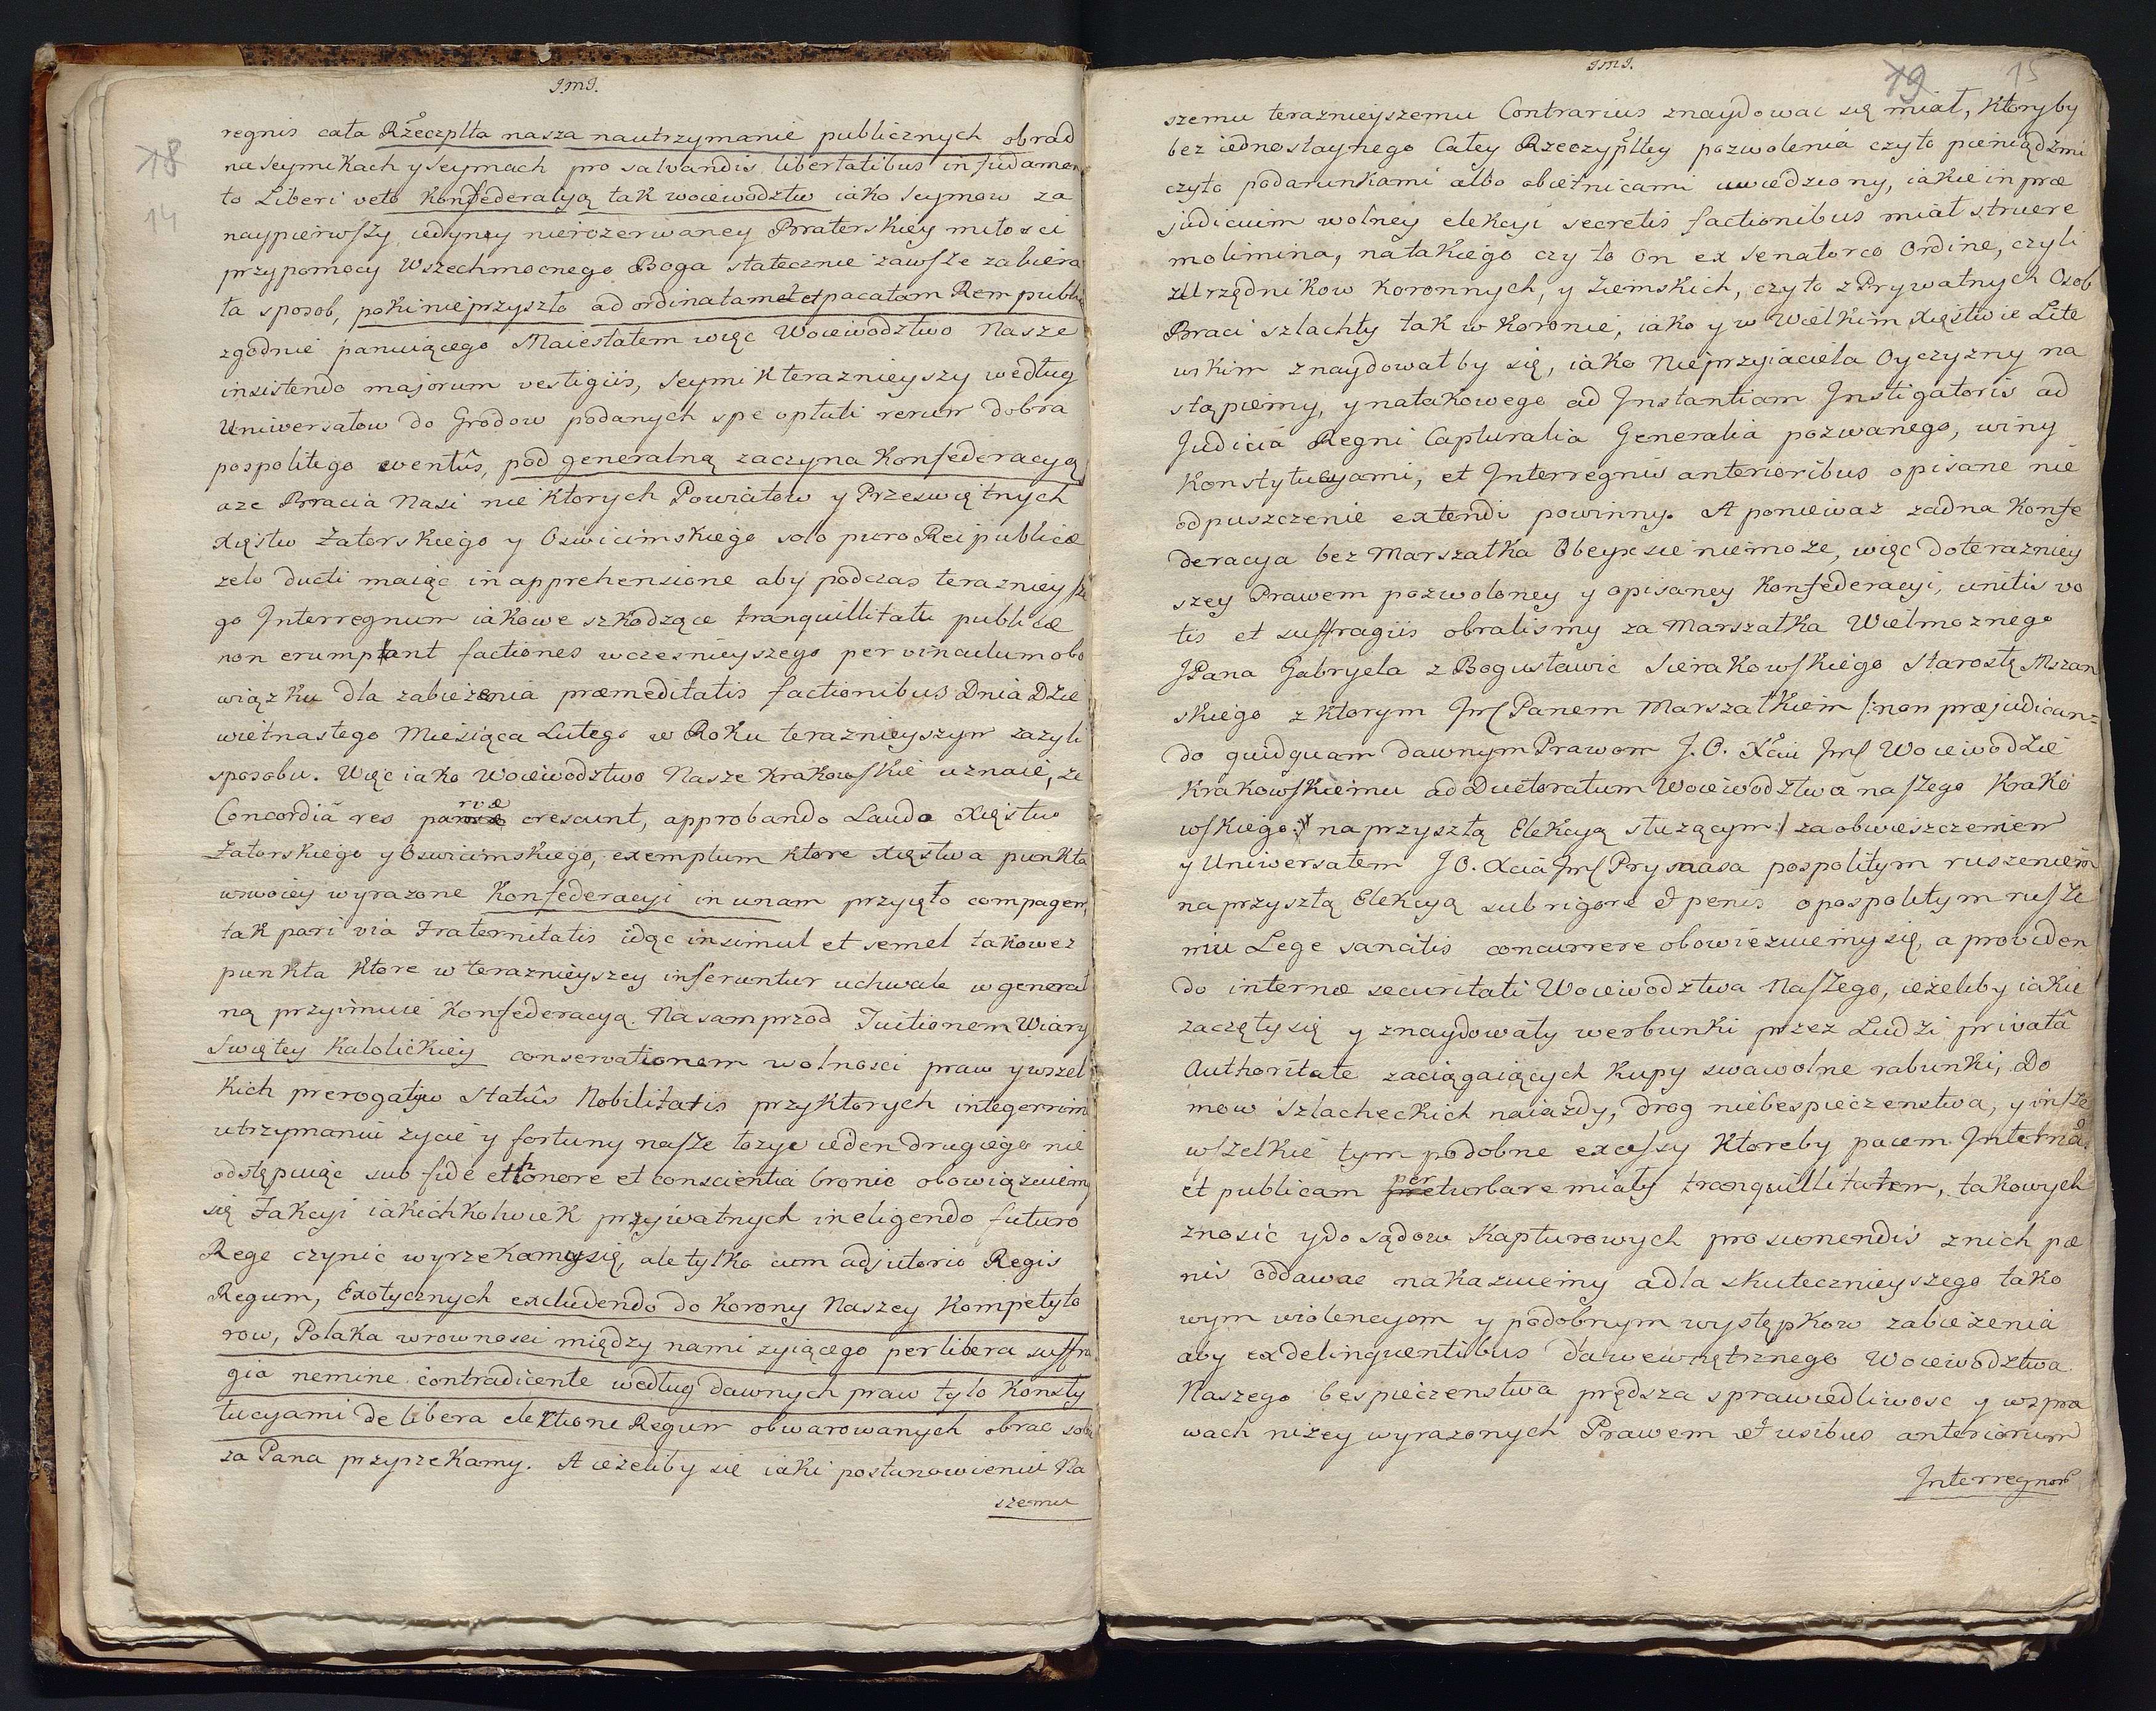 J.M.J.
18
14
regnis cała Rzeczplta nasza nautrzymanie publicznych obrad
na Seymikach y Seymach pro salvandis libertatibus in fudamen
to Liberi veto Konfederatyą tak woiewodztw iako Seymow za
naypierwszy iedynzy nierozerwaney Braterskiey miłosci
przypomocy Wszechmocnego Boga statecznie zawsze zabiera
ta sposob, pokinieprzyszło ad ordinatam et pacatam Rempubli
zgodnie panuiącego Maiestatem więc Woiewodztwo Nasze
insistendo majorum vestigiis, Seymik teraznieyszy według
Universałow do Grodow podanych spe optati rerum dobra
pospolitego eventûs, pod generalną zaczyna Konfederacyą
aze Bracia Nasi nie ktorych Powiatow y Przeswiętnych
Xięstw Zatorskiego y Oswiecimskiego solo puro Reipublicæ
zelo ducti maiąc in apprehensione aby podczas teraznieysze
go Interregnum iakowe szkodzące tranquillitati publicæ
non erumpant factiones wczesnieyszego per vinculum obo
wiązku dla zabieżenia præmeditatis factionibus Dnia Dzie
wietnastego Miesiąca Lutego w Roku teraznieyszym zazyli
sposobu. Więc iako Woiewodztwo Nasze Krakowskie uznaie, ze
Concordiâ res parvæ crescunt, approbando Lauda Xięstw
Zatorskiego y Oswiecimskiego, exemplum ktore Xięstwa punkta
wswoiey wyrazone Konfederacyi in unam przyięto compagem,
tak pari via Fraternitatis idąc insimul et semel takowez
punkta ktore w teraznieyszey inseruntur uchwale w general
ną przyimuie Konfederacyą. Nasamprzod Tuitionem Wiary
Swiętey Katolickiey conservationem wolnosci praw ywszel
kich prerogatyw Statûs Nobilitatis przyktorych integerrim
utrzymaniu zycie y fortuny nasze łozyc ieden drugiego nie
odstępuiąc sub fide et honore et conscientia bronic obowiązuiemy
się Fakcyi iakichkolwiek prywatnych in eligendo futuro
Rege czynic wyrzekamysię, ale tylko cum adjutorio Regis
Regum, Exotycznych excludendo do Korony Naszey Kompetyto
row, Polaka wrownosci między nami zyiącego per libera suffra
gia nemine contradicente według dawnych praw tylo Konsty
tucyami de libera elektione Regum obwarowanych obrac sobie
za Pana przyrzekamy. A iezeliby się iaki postanowieniu Na
szemu
J.M.J.
19
15
szemu teraznieyszemu Contrarius znaydowac się miał, ktoryby
bez iednostaynego Całey Rzeczypltey pozwolenia czyto pieniądzmi
czyto podarunkami albo obietnicami uwiedziony, iakie in præ
judicium wolney elekcyi secretis factionibus miał struere
molimina, natakiego czy to On ex Senatorco Ordine, czyli
z Urzędnikow Koronnych, y Ziemskich, czyto z Prywatnych Osob
Braci szlachty tak w Koronie, iako y w Wielkim Xięstwie Lite
wskim znaydowałby się, iako Nieprzyiaciela Oyczyzny na
stąpiemy, ynatakowego ad Instantiam Instigatoris ad
Judicia Regni Capturalia Generalia pozwanego, winy
Konstytucyami, et Interregnis anterioribus opisane nie
odpuszczenie extendi powinny. A poniewaz zadna Konfe
deracya bez Marszałka Obeyscsie niemoze, więc doterazniey
szey Prawem pozwoloney y opisaney Konfederacyi, unitis vo
tis et suffragiis obralismy za Marszałka Wielmoznego
JPana Gabryela z Bogusławic Sierakowskiego Starostę Mszan
skiego z ktorym Jmć Panem Marszałkiem /:non præjudican=
do quidquam dawnym Prawom J. O. Xciu Jmć Woiewodzie
Krakowskiemu ad Ductoratum Woiewodztwa naszego Krako
wskiego: naprzyszłą Elekcyą słuzącym:/ zaobwieszczeniem
y Uniwersałem J O. Xcia Jmć Prymasa pospolitym ruszeniem
naprzyszłą Elekcyą sub rigore et penis opospolitym rusze
niu Lege sancitis concurrere obowięzuiemy się, a providen
do internæ securitati Woiewodztwa Naszego, ieżeliby iakie
zaczęłysię y znaydowały werbunki przez Ludzi privatâ
Authoritate zaciągaiących kupy swawolne rabunki, Do
mow szlacheckich naiazdy, drog niebespieczenstwa, y insze
wszelkie tym podobne excessy Ktoreby pacem Internã
et publicam perturbare miały tranquillitatem, takowych
znosic ydo sądow Kapturowych pro sumendis znich pæ
nis oddawac nakazuiemy adla skutecznieyszego tako
wym violencyom y podobnym występkow zabieżenia
aby ex delinquentibus dawewnętrznego Woiewodztwa
Naszego bespieczenstwa prędsza sprawiedliwosc y wspra
wach niżey wyrazonych Prawem et usibus anteriorum
Interregnorũ